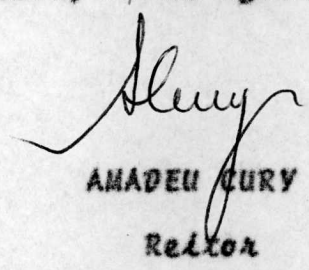 AMADEU CURY
Reitor